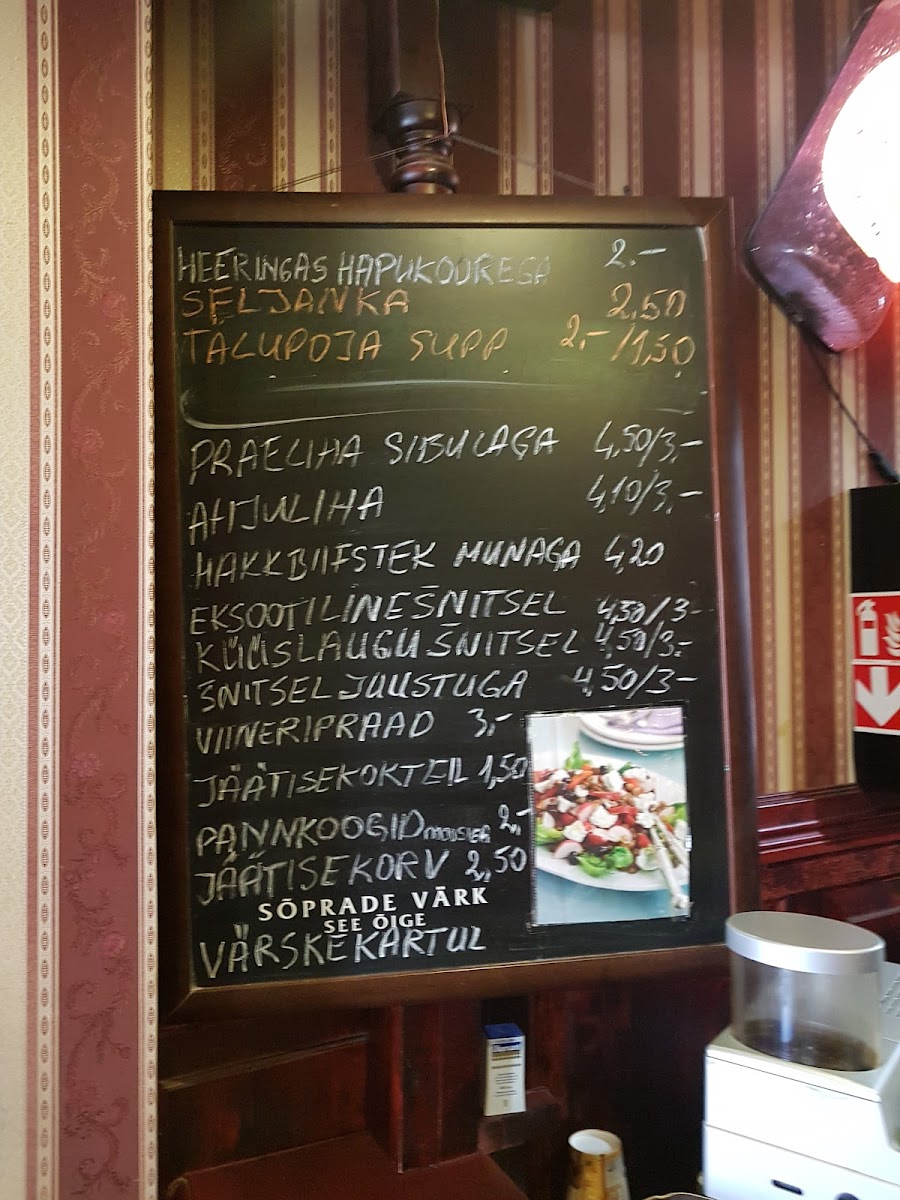 HEERINGAS HAPUKOOREGA 2.-
SELJANKA 2,50
TALUPOJA SUPP 2,-/1,50
PRAELIHA SIBULAGA 4,50/3,-
AHJULIHA 4,10/3,-
HAKKBIIFSTEK MUNAGA 4,20
EKSOOTILINE ŠNITSEL 4,50/3-
KÜÜSLAUGU ŠNITSEL 4,50/3,-
ŠNITSEL JUUSTUGA 4,50/3-
VIINERIPRAAD 3,-
JÄÄTISEKOKTEIL 1,50
PANNKOOGID MOOSIGA 2,-
JÄÄTISEKORV 2,50
SÕPRADE VÄRK
SEE ÕIGE
VÄRSKE KARTUL